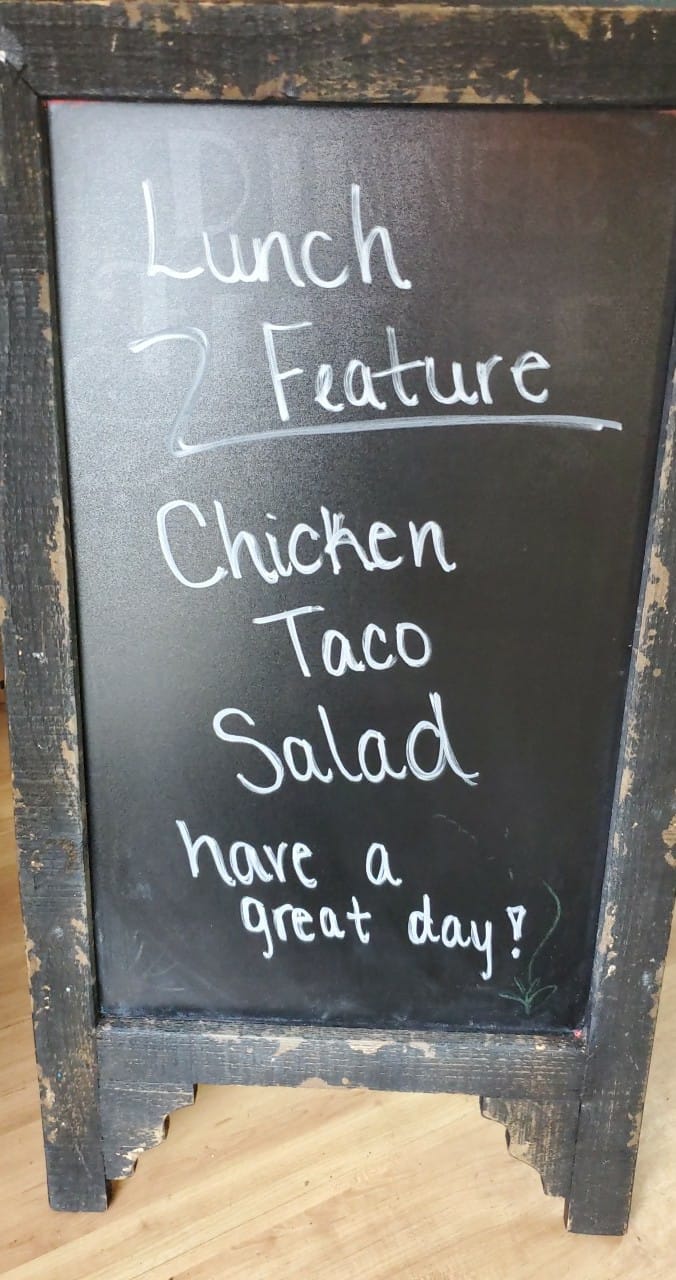 Lunch
Feature
Chicken
Taco
Salad
have a
great day!